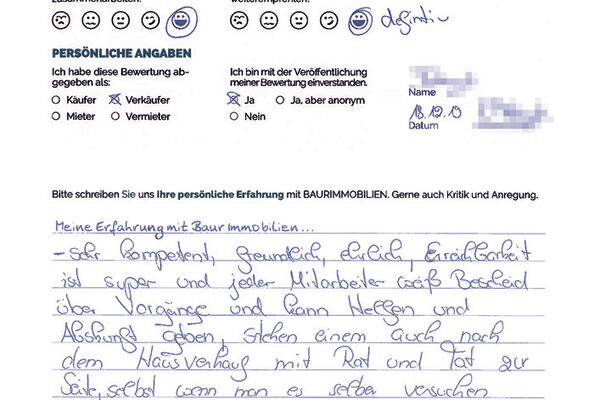 zusammenarbeiten.
weiterempfehlen.
definitiv
PERSÖNLICHE ANGABEN
Ich habe diese Bewertung ab-
gegeben als:
Käufer
Verkäufer
Mieter
Vermieter
Ich bin mit der Veröffentlichung
meiner Bewertung einverstanden.
Ja
Ja, aber anonym
Nein
Name
18.12.19
Datum
Bitte schreiben Sie uns Ihre persönliche Erfahrung mit BAURIMMOBILIEN. Gerne auch Kritik und Anregung.
Meine Erfahrung mit Baur Immobilien...
- Sehr kompetent, freundlich, ehrlich, Erreichbarkeit
ist super und jeder Mitarbeiter weiß Bescheid
über Vorgänge und kann Helfen und
Abskunft geben, stehen einem auch nach
dem Hausverkauf mit Rat und Tat zur
Seite, selbst wenn man es selber versuchen